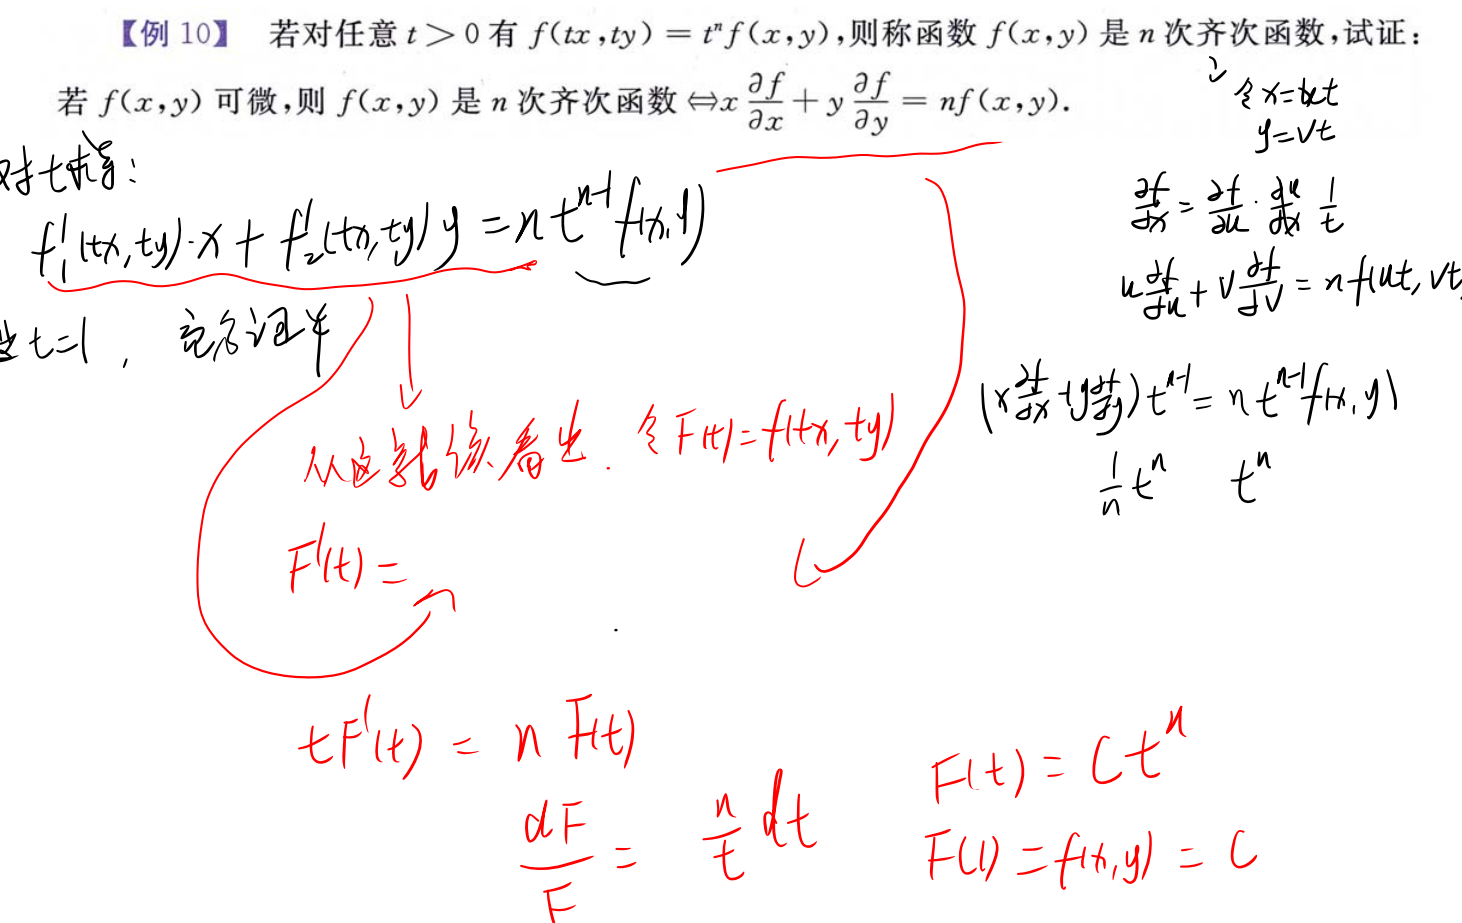 【例 10】 若对任意 t > 0 有 f(tx,ty) = tⁿf(x,y),则称函数 f(x,y) 是 n 次齐次函数,试证:
若 f(x,y) 可微,则 f(x,y) 是 n 次齐次函数 ⇔ x ∂f/∂x + y ∂f/∂y = nf(x,y).
对t求导:
f₁'(tx,ty)·x + f₂'(tx,ty) y = n tⁿ⁻¹ f(x,y)
t=1 ,
令 F(t)=f(tx,ty)
F'(t) =
tF'(t) = n F(t)
dF/F = n/t dt
F(t) = C tⁿ
F(1) = f(x,y) = C
令 x=ut
y=vt
∂f/∂x = ∂f/∂u · ∂u/∂x 1/t
u ∂f/∂u + v ∂f/∂v = n f(ut, vt
(x ∂f/∂x + y ∂f/∂y) tⁿ⁻¹ = n tⁿ⁻¹ f(x,y)
1/n tⁿ tⁿ